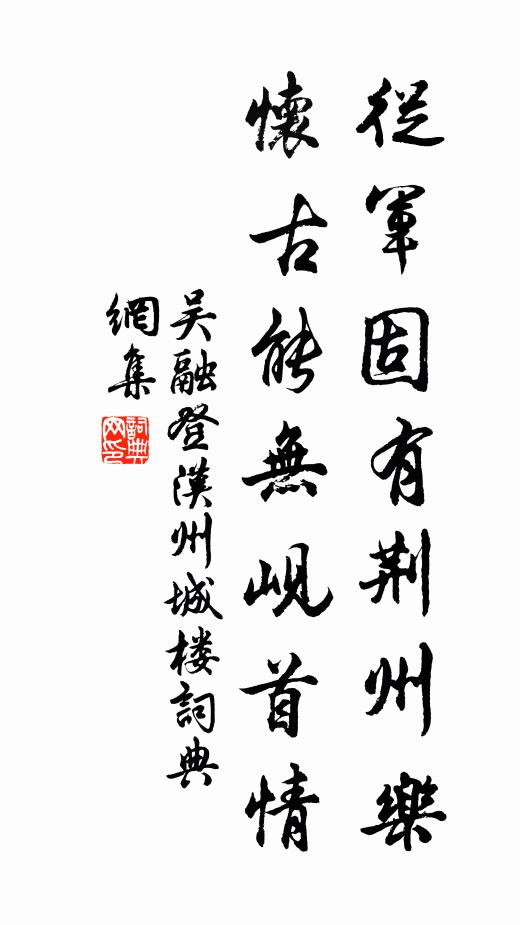 從軍固有荆州樂
懷古能無峴首情
吴融登漢州城楼詞典
網集
詞典
网印